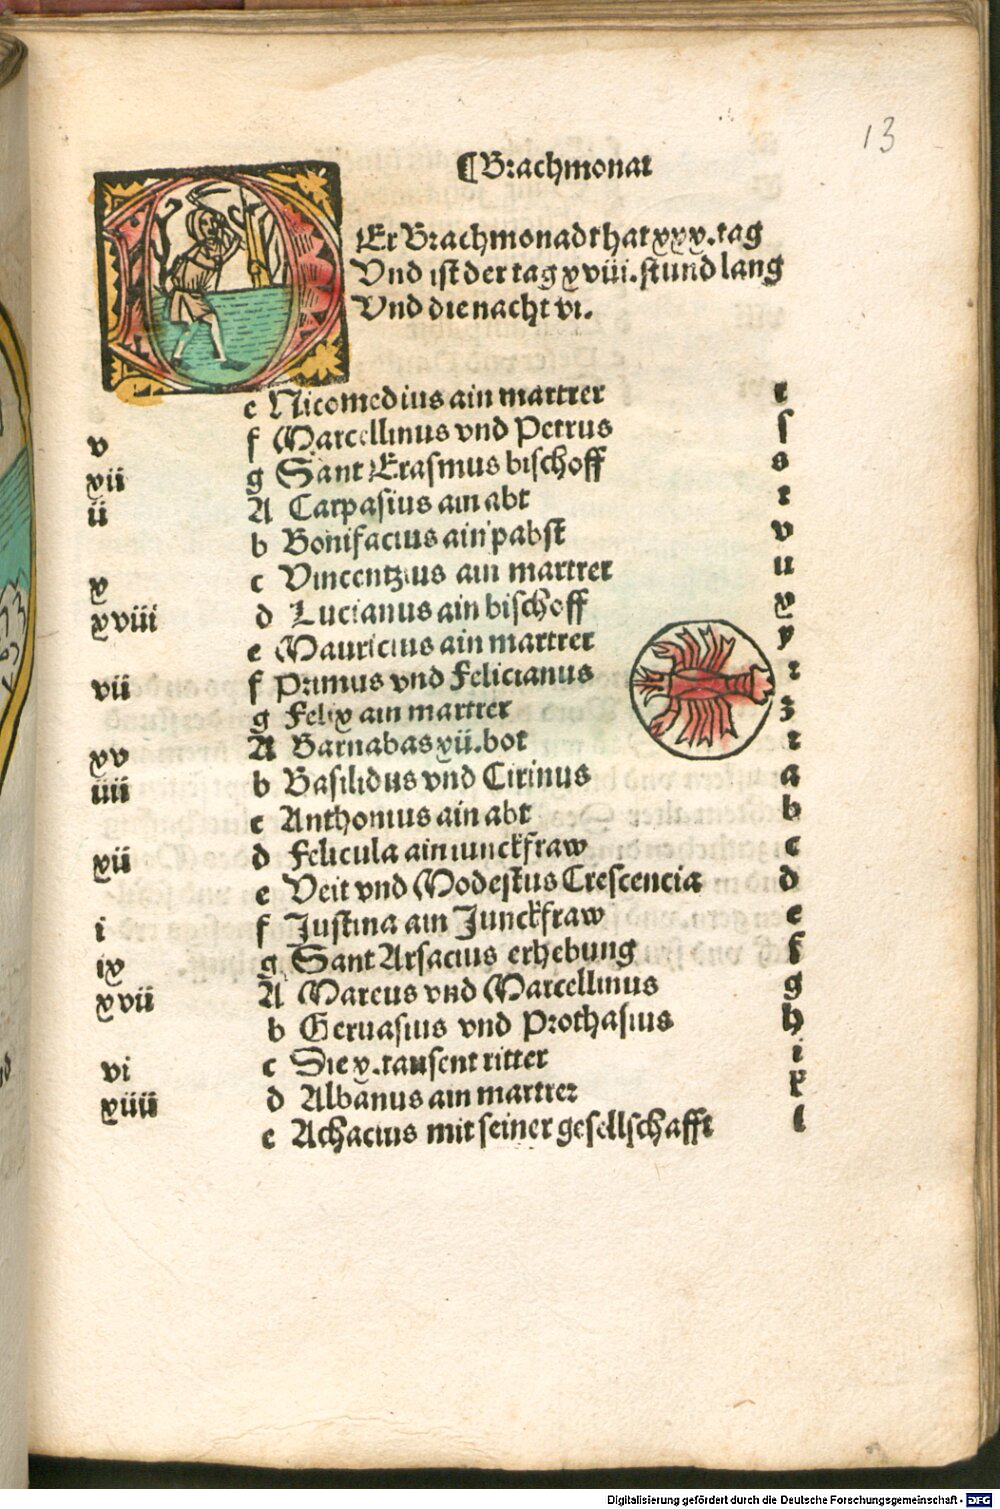 13
¶Brachmonat
Er Brachmonadt hat xxx. tag
Vnd ist der tag xviii. stund lang
Vnd die nacht vi.
e Nicomedius ain martrer r
v f Marcellinus vnd Petrus ſ
xii g Sant Erasmus bischoff s
ii A Carpasius ain abt t
b Bonifacius ain pabst v
x c Vincentzius ain martrer u
xviii d Lucianus ain bischoff x
e Mauricius ain martrer y
vii f Primus vnd Felicianus z
g Felix ain martrer 3
xv A Barnabas xii. bot z
iiii b Basilidus vnd Cirinus a
c Anthonius ain abt b
xii d Felicula ain iunckfraw c
e Veit vnd Modestus Crescencia d
i f Justina ain Junckfraw e
ix g Sant Arsacius erhebung f
xvii A Marcus vnd Marcellinus g
b Geruasius vnd Prothasius h
vi c Die x. tausent ritter i
xiiii d Albanus ain martrer k
e Achacius mit seiner gesellschafft l
Digitalisierung gefördert durch die Deutsche Forschungsgemeinschaft - DFG